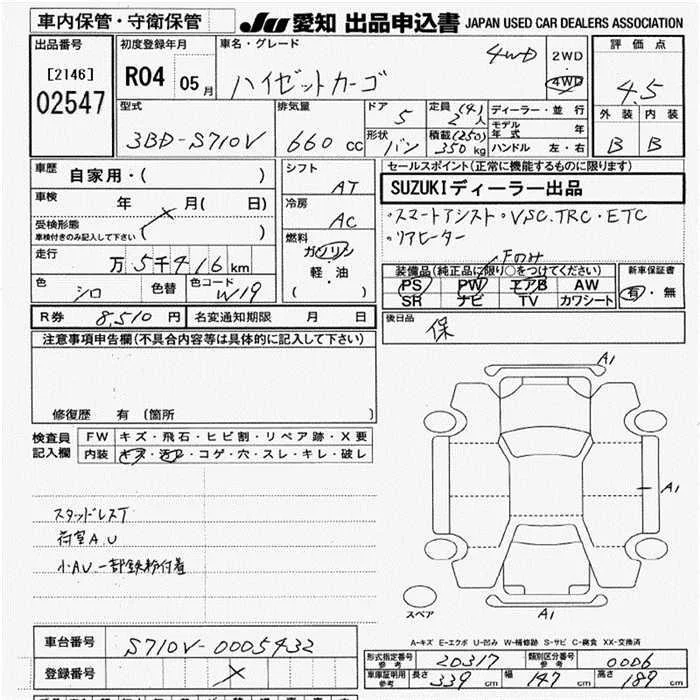 車内保管・守衛保管
JU 愛知 出品申込書 JAPAN USED CAR DEALERS ASSOCIATION
出品番号
[2146]
02547
初度登録年月
R04 05月
車名・グレード
4WD
ハイゼットカーゴ
2WD
・
4WD
評価点
4.5
外装 内装
B B
型式
3BD-S710V
排気量
660 CC
ドア
5
形状
バン
定員 (4)
2 人
積載 (250)
350 kg
ディーラー・並行
モデル年式 年
ハンドル 左・右
車歴
自家用・( )
車検
年 月( 日)
受検形態
車検付きのみ記入して下さい ( )
走行
万 5千416km
色
シロ
色替
色コード
W19
シフト
AT
冷房
AC
燃料
ガソリン
・
軽・油
( )
セールスポイント(正常に機能するものに限ります)
SUZUKIディーラー出品
・スマートアシスト・VSC.TRC・ETC
・リアヒーター
Fのみ
装備品(純正品に限り○をつけてください)
PS PW エアB AW
SR ナビ TV カワシート
新車保証書
有・無
R券 8,510円
名変通知期限 月 日
後日品
保
注意事項申告欄(不具合内容等は具体的に記入して下さい)
修復歴 有 (箇所 )
検査員
記入欄
FW キズ・飛石・ヒビ割・リペア跡・X要
内装 キズ・汚レ・コゲ・穴・スレ・キレ・破レ
スタッドレスT
荷室A.U
小AU 一部鉄粉付着
A1
A1
A1
スペア
A-キズ E-エクボ U-凹み W-補修跡 S-サビ C-腐食 XX-交換済
車台番号 S710V-0005432
登録番号
形式指定番号
参考
20317
類別区分番号
参考
0006
車庫証明用
参考
長さ 339 cm
幅 147 cm
高さ 189 cm